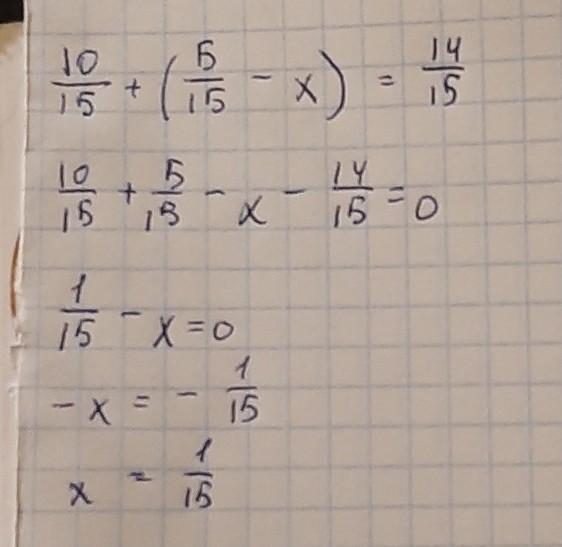 10/15 + (5/15 - x) = 14/15
10/15 + 5/15 - x - 14/15 = 0
1/15 - x = 0
- x = - 1/15
x = 1/15